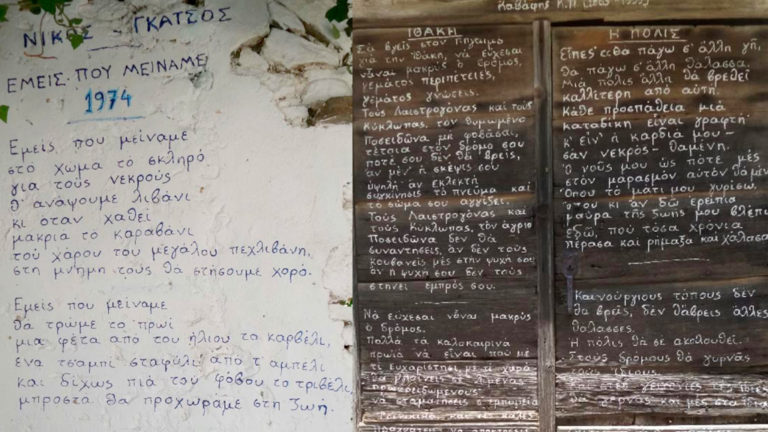 ΝΙΚΟΣ - ΓΚΑΤΣΟΣ
ΕΜΕΙΣ ΠΟΥ ΜΕΙΝΑΜΕ
1974
Εμείς που μείναμε
στο χώμα το σκληρό
για τους νεκρούς
θ' ανάψουμε λιβάνι
κι όταν χαθεί
μακριά το καραβάνι
τού χάρου του μεγάλου πεχλιβάνη,
στη μνήμη τους θα στήσουμε χορό.
Εμείς που μείναμε
θα τρώμε το πρωί
μια φέτα από του ήλιου το καρβέλι,
ένα τσαμπί σταφύλι από τ' αμπέλι
και δίχως πιά τού φόβου το τριβέλι,
μπροστά θα προχωράμε στη ζωή.
Καβάφης Κ.Π.
ΙΘΑΚΗ
Σα βγεις στον πηγαιμό
για την Ιθάκη, νά εύχεσαι
νάναι μακρύς ο δρόμος,
γεμάτος περιπέτειες,
γεμάτος γνώσεις.
Τούς Λαιστρυγόνας καί τούς
Κύκλωπας, τόν θυμωμένο
Ποσειδώνα μή φοβάσαι,
τέτοια στόν δρόμο σου
ποτέ σου δέν θά βρείς,
άν μέν' ή σκέψις σου
υψηλή άν εκλεκτή
συγκίνησις τό πνεύμα καί
τό σώμα σου αγγίζει.
Τούς Λαιστρυγόνας καί
τούς Κύκλωπας, τόν άγριο
Ποσειδώνα δέν θά
συναντήσεις, άν δέν τούς
κουβανείς μές στήν ψυχή σου
άν ή ψυχή σου δέν τούς
στήνει εμπρός σου.
Νά εύχεσαι νάναι μακρύς
ο δρόμος.
Πολλά τά καλοκαιρινά
πρωϊά νά είναι πού μέ
τί ευχαρίστησι μέ τί χαρά
θά μπαίνεις σέ λιμένας
πρωτοειδωμένους
νά σταματήσεις σ' εμπορεία
Φοινικικά, καί τές καλές
πραγμάτειες ν' αποκτήσεις
Η ΠΟΛΙΣ
Είπες· «Θά πάγω σ' άλλη γή,
θά πάγω σ' άλλη θάλασσα.
Μιά πόλις άλλη θά βρεθεί
καλλίτερη από αυτή.
Κάθε προσπάθεια μιά
καταδίκη είναι γραφτή·
κ' είν' ή καρδιά μου -
σάν νεκρός - θαμένη.
Ο νούς μου ώς πότε μές
στόν μαρασμόν αυτόν θά μένει
Όπου τό μάτι μου γυρίσω,
όπου κι άν δώ ερείπια
μαύρα τής ζωής μου βλέπω
εδώ, πού τόσα χρόνια
πέρασα καί ρήμαξα καί χάλασα
Καινούργιους τόπους δέν
θά βρείς, δέν θάβρεις άλλες
θάλασσες.
Η πόλις θά σέ ακολουθεί.
Στούς δρόμους θά γυρνάς
τούς ίδιους.
Καί στές γειτονιές τές ίδιες
θά γερνάς καί μές στά ίδια